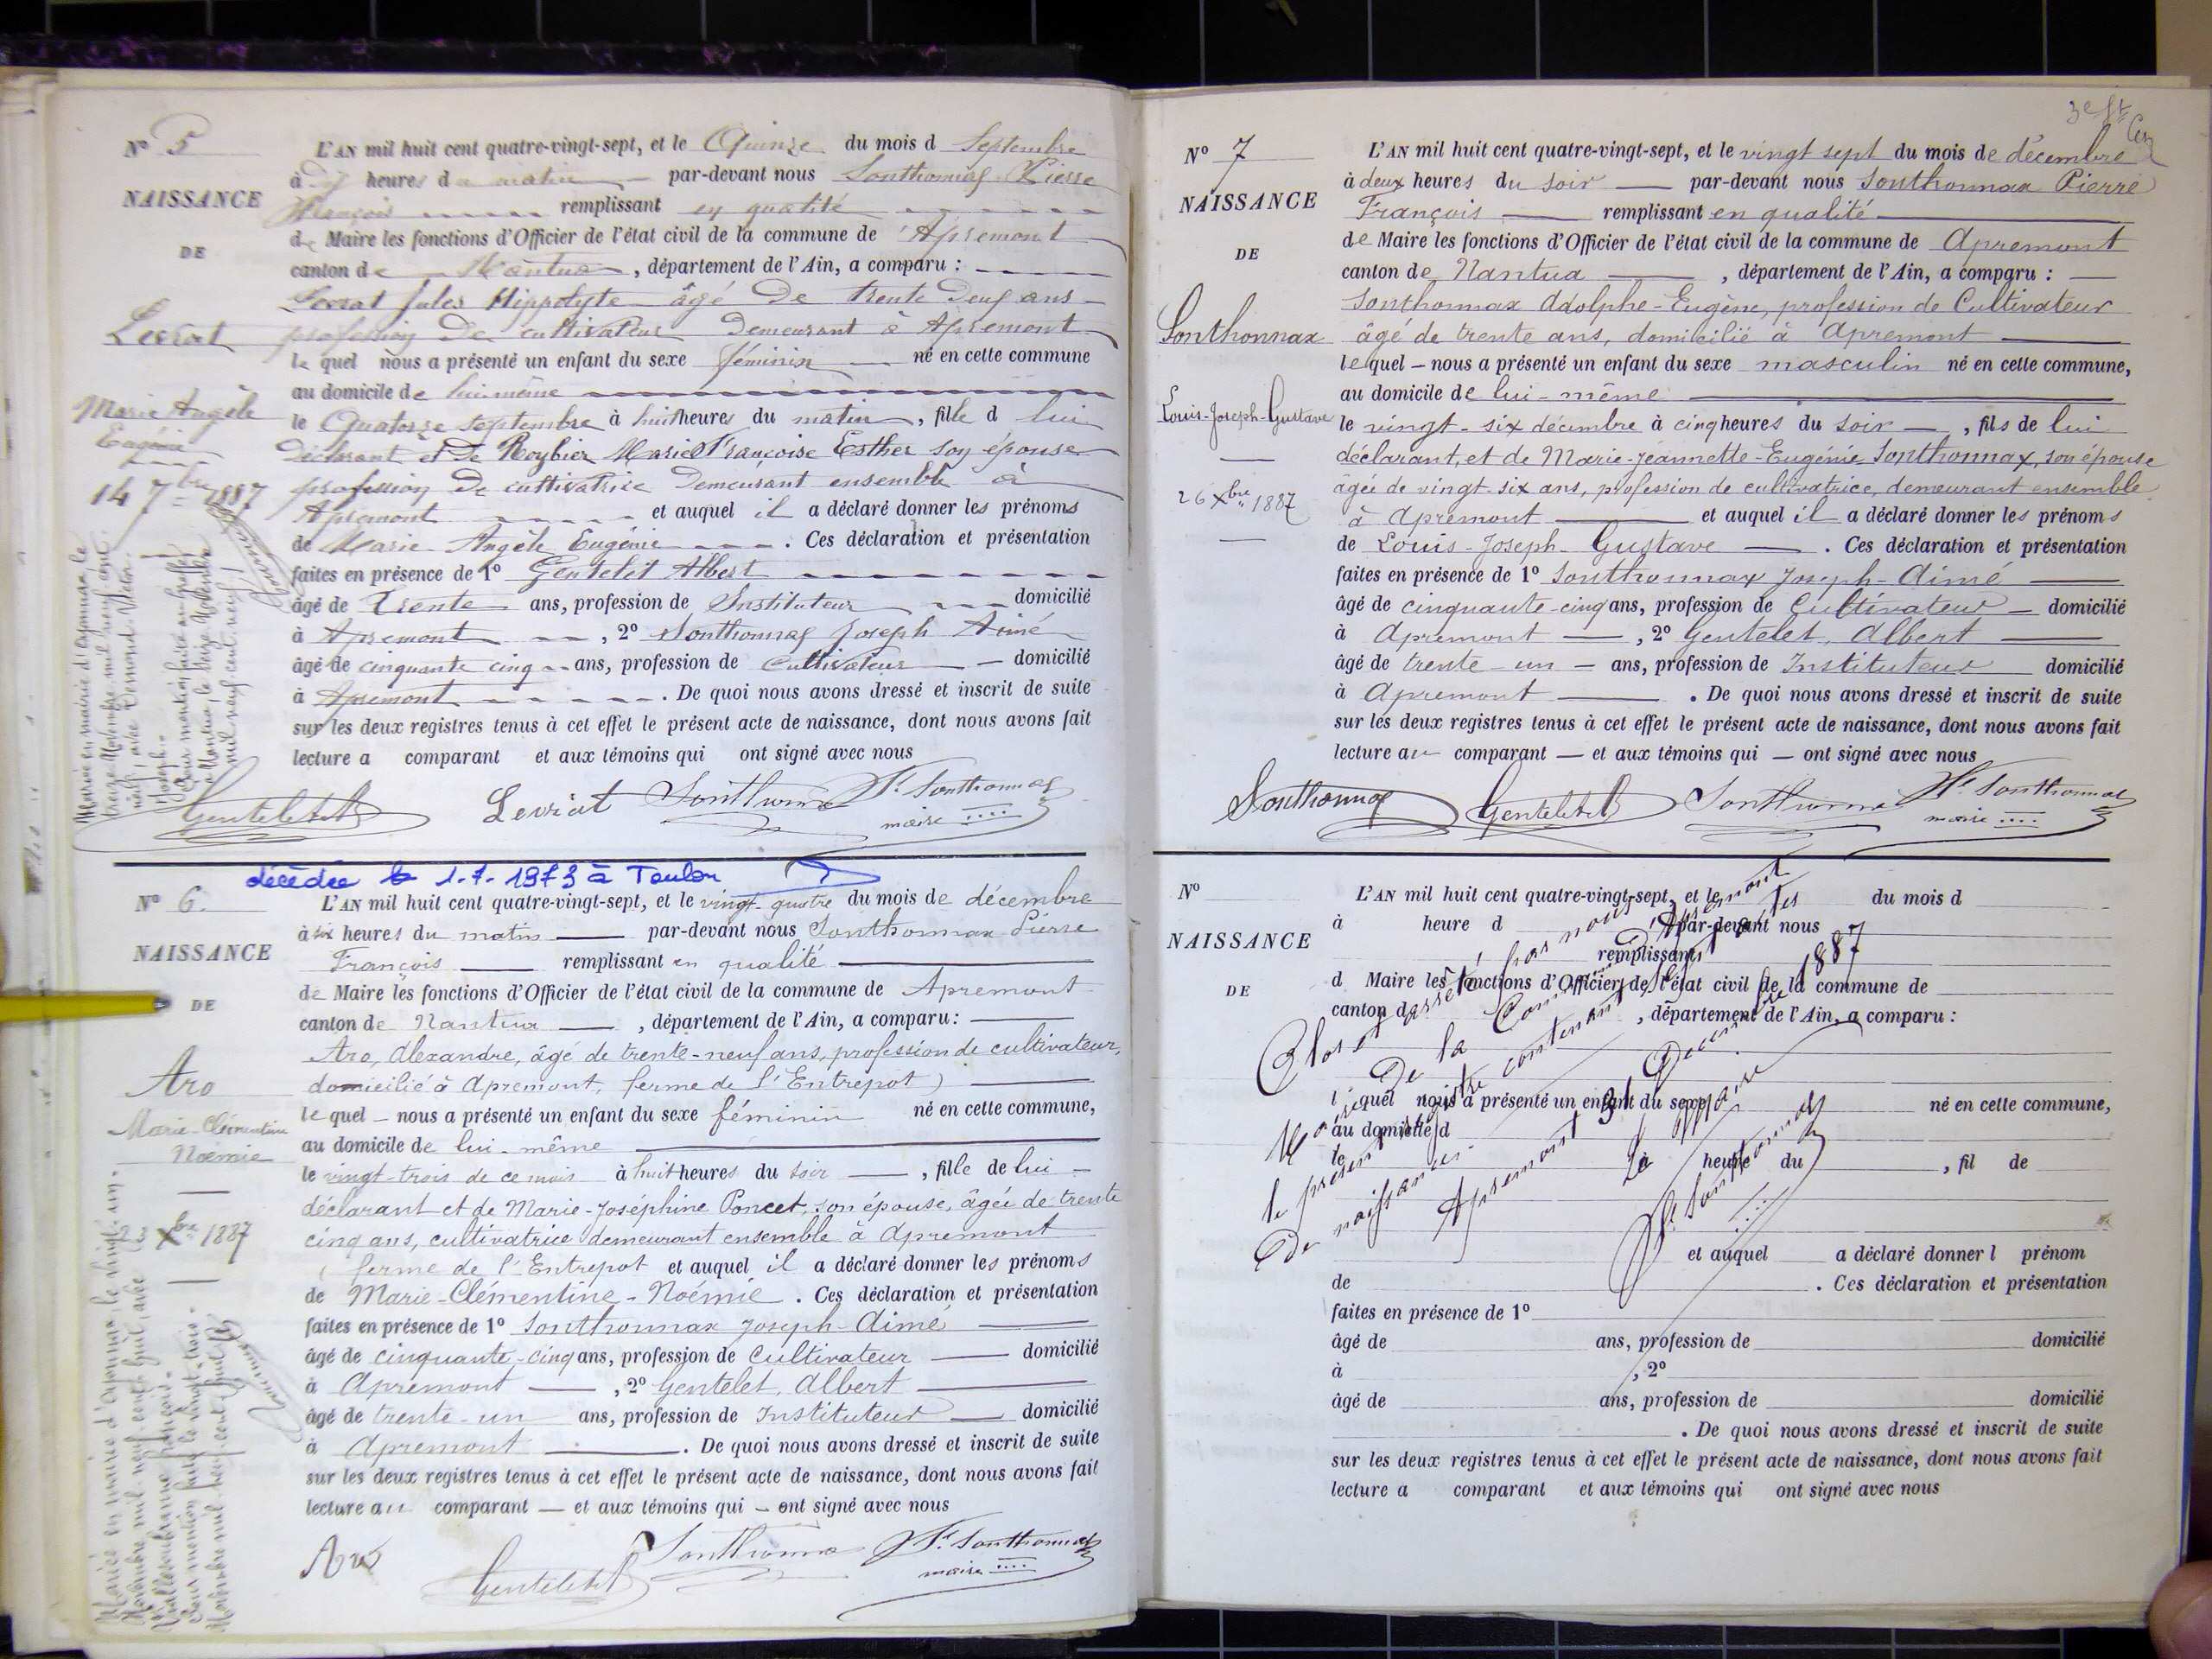 Nº 5
NAISSANCE
DE
Levrat
Marie Angèle
Eugénie
14 7bre 1887
L'AN mil huit cent quatre-vingt-sept, et le Quinze du mois d Septembre
à heures du matin par-devant nous Sonthonnax Pierre
François remplissant en qualité
de Maire les fonctions d'Officier de l'état civil de la commune de Apremont
canton de Nantua, département de l'Ain, a comparu :
Levrat Jules Hippolyte âgé de trente deux ans
profession de cultivateur demeurant à Apremont
lequel nous a présenté un enfant du sexe féminin né en cette commune
au domicile de lui-même
le Quatorze septembre à huit heures du matin, fille d lui
déclarant et de Roybier Marie Françoise Esther son épouse
profession de cultivatrice demeurant ensemble à
Apremont et auquel il a déclaré donner les prénoms
de Marie Angèle Eugénie. Ces déclaration et présentation
faites en présence de 1º Gentelet Albert
âgé de Trente ans, profession de Instituteur domicilié
à Apremont, 2º Sonthonnax Joseph Aimé
âgé de cinquante cinq ans, profession de Cultivateur domicilié
à Apremont. De quoi nous avons dressé et inscrit de suite
sur les deux registres tenus à cet effet le présent acte de naissance, dont nous avons fait
lecture a comparant et aux témoins qui ont signé avec nous
Mariée en mairie d'Oyonnax le
treize Novembre mil neuf cent
neuf, avec Demond Victor
Joseph.
Pour mention faite au greffe
à Nantua, le seize Novembre
mil neuf cent neuf
Gentelet A Levrat Sonthonnax P. Sonthonnax
maire
décédée le 1.7.1973 à Toulon
Nº 6.
NAISSANCE
DE
Aro
Marie-Clémentine
Noémie
23 Xbre 1887
L'AN mil huit cent quatre-vingt-sept, et le vingt-quatre du mois de décembre
à six heures du matin par-devant nous Sonthonnax Pierre
François remplissant en qualité
de Maire les fonctions d'Officier de l'état civil de la commune de Apremont
canton de Nantua, département de l'Ain, a comparu :
Aro, Alexandre, âgé de trente-neuf ans, profession de cultivateur,
domicilié à Apremont, ferme de l'Entrepôt)
lequel nous a présenté un enfant du sexe féminin né en cette commune,
au domicile de lui-même
le vingt-trois de ce mois à huit heures du soir, fille de lui
déclarant et de Marie-Joséphine Poncet, son épouse, âgée de trente
cinq ans, cultivatrice demeurant ensemble à Apremont
(ferme de l'Entrepot et auquel il a déclaré donner les prénoms
de Marie-Clémentine-Noémie. Ces déclaration et présentation
faites en présence de 1º Sonthonnax Joseph-Aimé
âgé de cinquante-cinq ans, profession de Cultivateur domicilié
à Apremont, 2º Gentelet, Albert
âgé de trente-un ans, profession de Instituteur domicilié
à Apremont. De quoi nous avons dressé et inscrit de suite
sur les deux registres tenus à cet effet le présent acte de naissance, dont nous avons fait
lecture au comparant et aux témoins qui ont signé avec nous
Mariée en mairie d'Oyonnax, le vingt-un
Novembre mil neuf cent huit, avec
François.
Pour mention faite le vingt-trois
Novembre mil neuf cent huit
Aro Gentelet A Sonthonnax P. Sonthonnax
maire
Nº 7
NAISSANCE
DE
Sonthonnax
Louis-Joseph-Gustave
26 Xbre 1887
L'AN mil huit cent quatre-vingt-sept, et le vingt sept du mois de décembre
à deux heures du soir par-devant nous Sonthonnax Pierre
François remplissant en qualité
de Maire les fonctions d'Officier de l'état civil de la commune de Apremont
canton de Nantua, département de l'Ain, a comparu :
Sonthonnax Adolphe-Eugène, profession de Cultivateur
âgé de trente ans, domicilié à Apremont
lequel nous a présenté un enfant du sexe masculin né en cette commune,
au domicile de lui-même
le vingt-six décembre à cinq heures du soir, fils de lui
déclarant, et de Marie-Jeannette-Eugénie Sonthonnax, son épouse
âgée de vingt-six ans, profession de cultivatrice, demeurant ensemble
à Apremont et auquel il a déclaré donner les prénoms
de Louis-Joseph-Gustave. Ces déclaration et présentation
faites en présence de 1º Sonthonnax Joseph-Aimé
âgé de cinquante-cinq ans, profession de Cultivateur domicilié
à Apremont, 2º Gentelet, Albert
âgé de trente-un ans, profession de Instituteur domicilié
à Apremont. De quoi nous avons dressé et inscrit de suite
sur les deux registres tenus à cet effet le présent acte de naissance, dont nous avons fait
lecture au comparant et aux témoins qui ont signé avec nous
Sonthonnax Gentelet A Sonthonnax P. Sonthonnax
maire
Nº
NAISSANCE
DE
L'AN mil huit cent quatre-vingt-sept, et le du mois d
à heure d par-devant nous
remplissant
d Maire les fonctions d'Officier de l'état civil de la commune de
canton d , département de l'Ain, a comparu :
l quel nous a présenté un enfant du sexe né en cette commune,
au domicile d
le à heure du , fil de
et auquel a déclaré donner l prénom
de . Ces déclaration et présentation
faites en présence de 1º
âgé de ans, profession de domicilié
à , 2º
âgé de ans, profession de domicilié
. De quoi nous avons dressé et inscrit de suite
sur les deux registres tenus à cet effet le présent acte de naissance, dont nous avons fait
lecture a comparant et aux témoins qui ont signé avec nous
Clos et arrêté par nous
Maire de la Commune d'Apremont
le présent registre contenant sept actes
de naissances.
Apremont 31 Décembre 1887
Le Maire
P. Sonthonnax